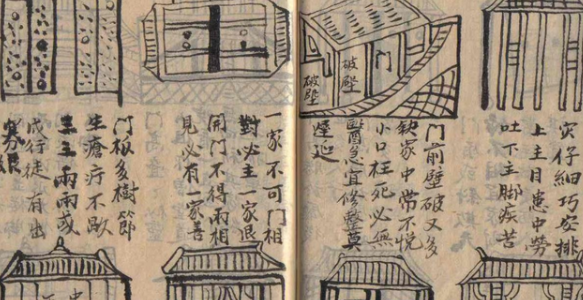 破壁
破壁
门
灾仔細巧安排
上主目患中勞
吐下主脚疾苦
门前壁破又多
缺家中常不悦
小口枉死必無
醫急宜修整莫
延
一家不可门相
對必主一家退
開门不得兩相
見必有一家善
门板多樹節
生瘡疔不歇
三三兩兩或
成行徒有出